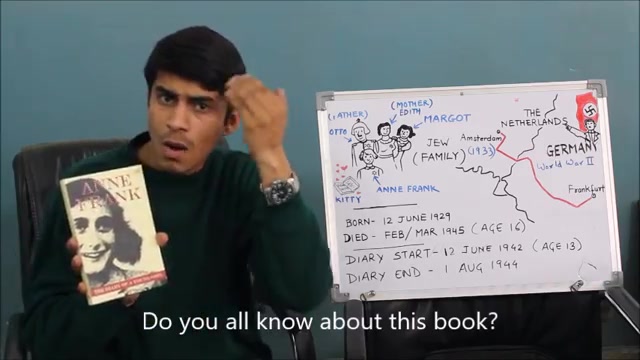 ANNE
FRANK
THE DIARY OF A YOUNG GIRL
(FATHER)
OTTO
(MOTHER)
EDITH
MARGOT
JEW
(FAMILY)
ANNE FRANK
KITTY
THE
NETHERLANDS
Amsterdam
(1933)
GERMANY
World War II
Frankfurt
BORN- 12 JUNE 1929
DIED- FEB/MAR 1945 (AGE 16)
DIARY START- 12 JUNE 1942 (AGE 13)
DIARY END - 1 AUG 1944
Do you all know about this book?